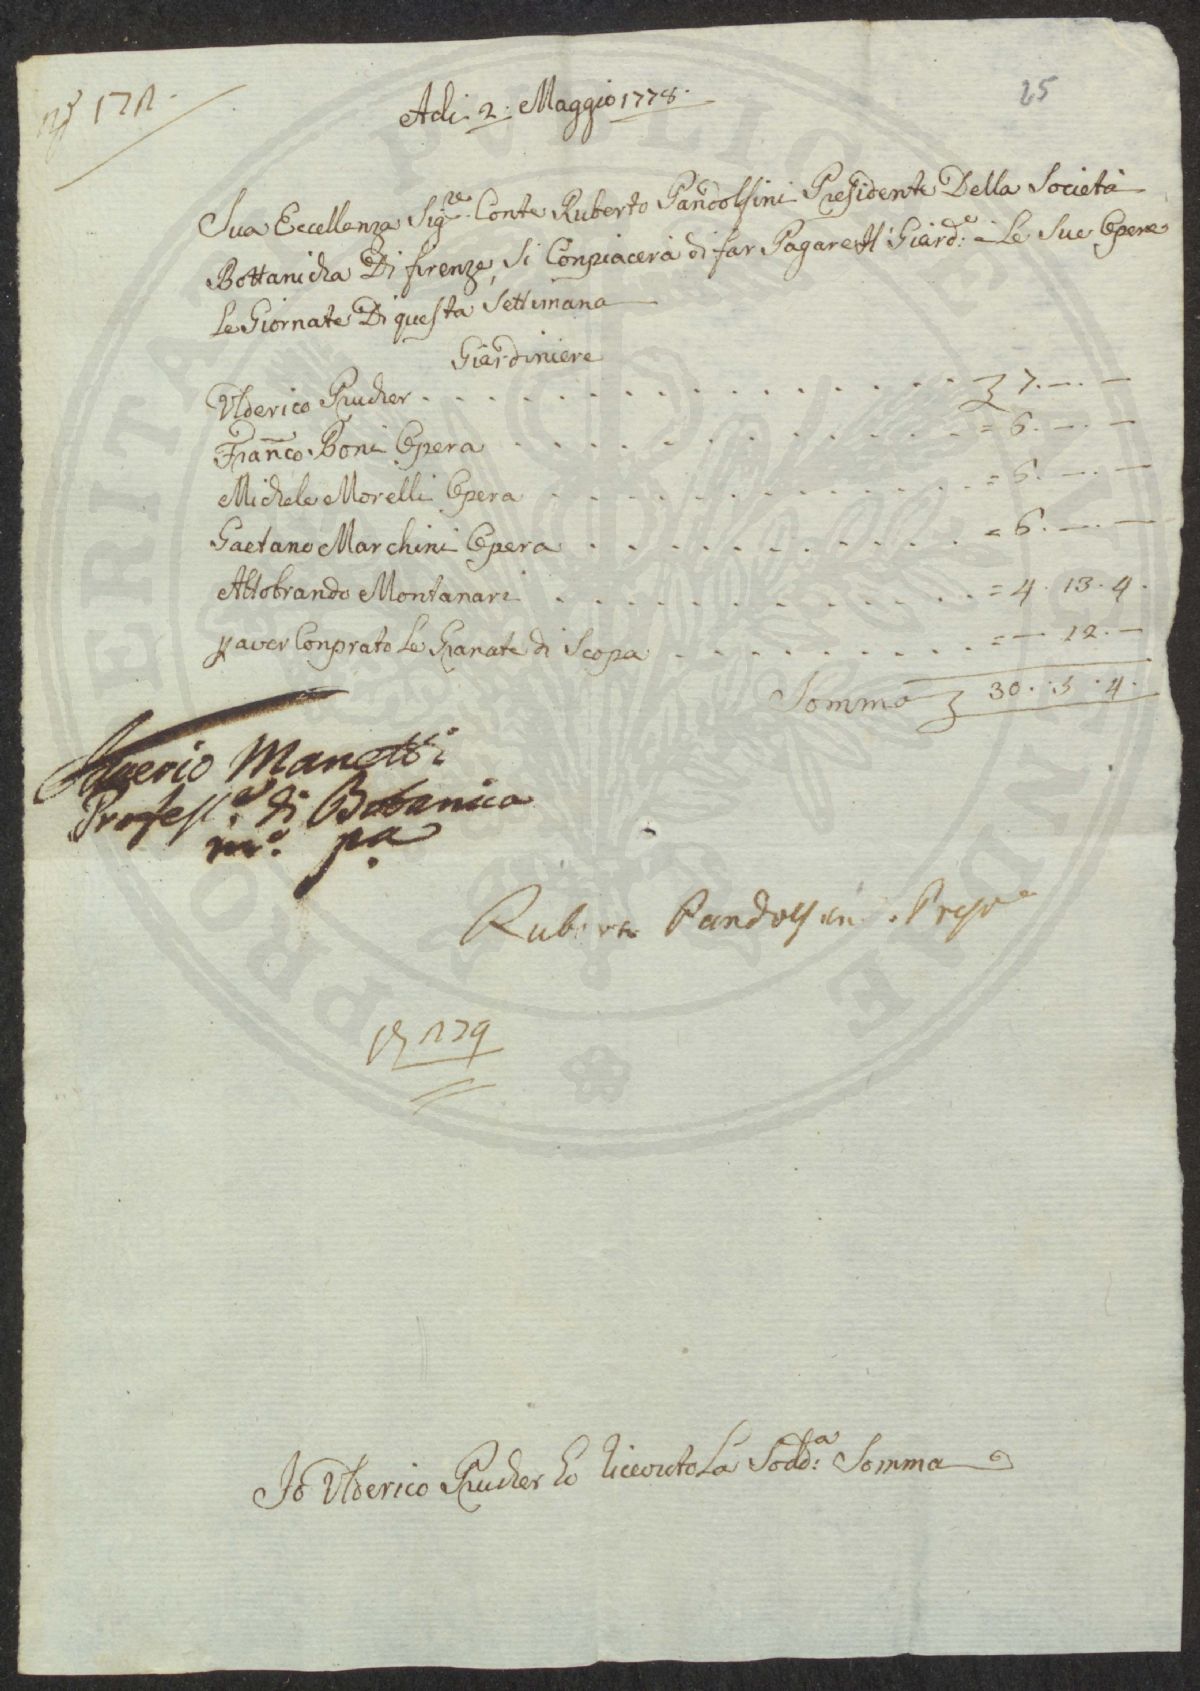 65
Adi 2: Maggio 1778.
Sua Eccellenza Sig.re Conte Ruberto Pandolfini Presidente Della Società
Bottanicha Di firenze, Si Conpiacerà di far Pagare Al Giard.e Le Sue Opere
Le Giornate Di questa Settimana
Giardiniere
Ulderico Prucher . . . . . . . . . . 7. — . —
Franco Boni Opera . . . . . . . . . . = 6. — . —
Michele Morelli Opera . . . . . . . . . . = 6. — . —
Gaetano Marchini Opera . . . . . . . . . . = 6. — . —
Altobrando Montanari . . . . . . . . . . = 4 . 13 . 4 .
p aver Conprato Le Granate di Scopa . . . . . . . . . = — 12. —
Somma 30 . 5 . 4 .
Saverio Manetti
Profess.e di Botanica
m.o pa
Ruberto Pandolfini Presve
Io Ulderico Prucher ho riceuto La Sodd.a Somma
PROSPERITATI PUBLICAE